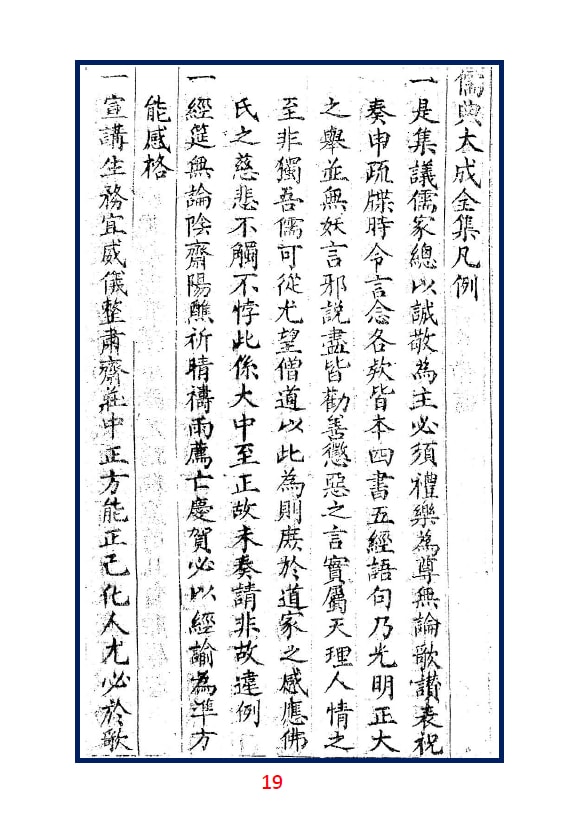 儒典大成金集凡例
一是集議儒家總以誠敬為主必須禮樂為尊無論歌讚表祝
奏申疏牒時令言念各欵皆本四書五經語句乃光明正大
之舉並無妖言邪說盡皆勸善懲惡之言實屬天理人情之
至非獨吾儒可從尤望僧道以此為則庶於道家之感應佛
氏之慈悲不觸不悖此係大中至正故未奏請非故違例
一經筵無論陰齋陽醮祈晴禱雨薦亡慶賀必以經諭為準方
能感格
一宣講生務宜威儀整肅齊莊中正方能正己化人尤必於歌
19